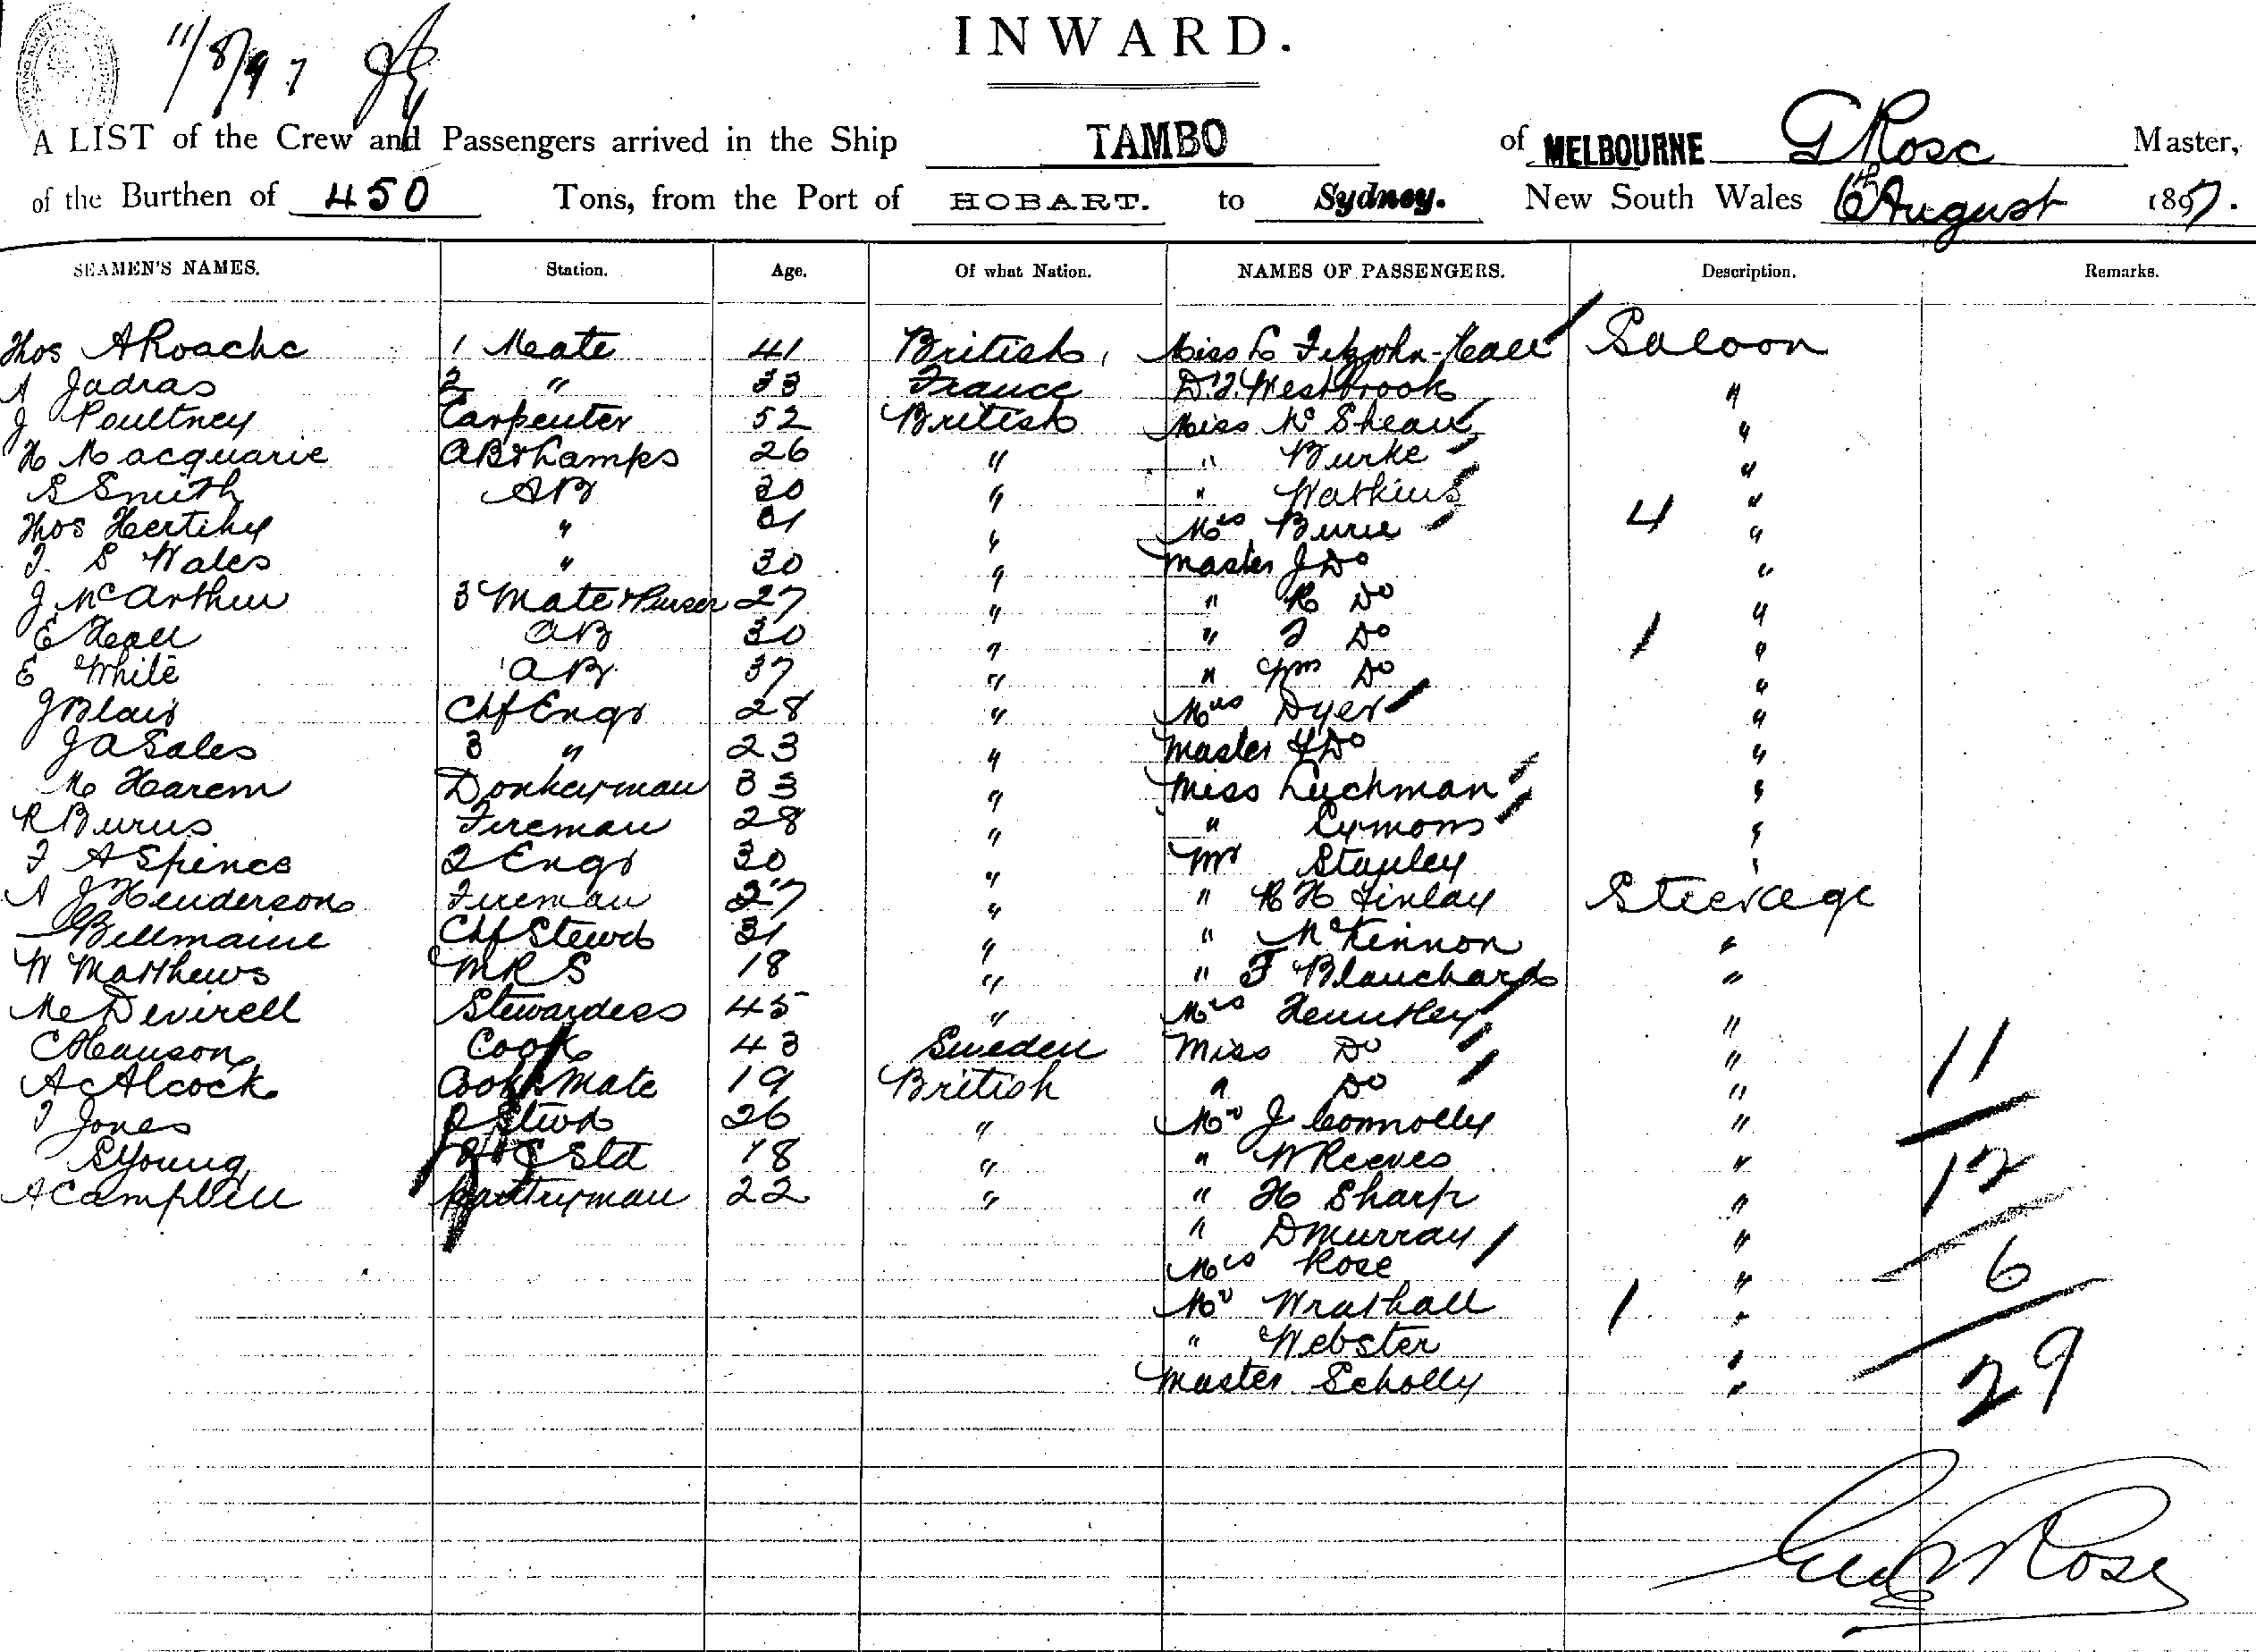 11/8/97
INWARD.
A LIST of the Crew and Passengers arrived in the Ship TAMBO of MELBOURNE G Rose Master,
of the Burthen of 450 Tons, from the Port of HOBART. to Sydney. New South Wales 6th August 1897.
SEAMEN'S NAMES. Station. Age. Of what Nation. NAMES OF PASSENGERS. Description. Remarks.
Thos A Roache 1 Mate 41 British, Miss L Fitzjohn-Hall Saloon
A Jadras 2 " 33 France D. J. Westbrook "
J Poultney Carpenter 52 British Miss Mc Shean "
H Macquarie AB & Lamps 26 " " Burke "
S Smith AB 30 " " Watkins "
Thos Hertihy " 31 " Mrs Burie 4 "
J. S Wales " 30 " Master J Do "
J McArthur 3 Mate & Purser 27 " " R Do "
E Hall AB 30 " " J Do 1 "
E White AB 37 " " Wm Do "
J Blair Chf Engr 28 " Mrs Dyer "
J A Sales 3 " 23 " Master Do "
M Harem Donkeyman 33 " Miss Luchman "
R Burns Fireman 28 " " Symons "
J A Spince 2 Engr 30 " Mr Stanley "
A J Henderson Fireman 27 " " R H Finlay Steerage
Bellmaine Chf Stewd 31 " " McKinnon "
W Matthews MRS 18 " " F Blanchard "
M Devirell Stewardess 45 " Mrs Henntley "
C Hanson Cook 43 Sweden Miss Do "
A Alcock Cooks Mate 19 British " Do " 11
J Jones 2 Stewd 26 " Mr J Connolly "
S Young Std 18 " " W Reeves " 12
A Campbell Pantryman 22 " " H Sharp "
" D Murray "
Mrs Rose " 6
Mr Wrathall 1 "
" Webster "
Master Scholly " 29
Geo Rose